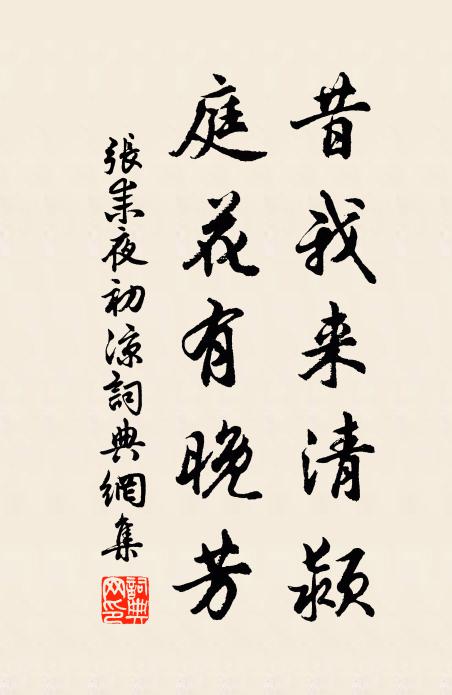 昔我来清颍
庭花有晚芳
張耒夜初涼詞典網集
詞典网印